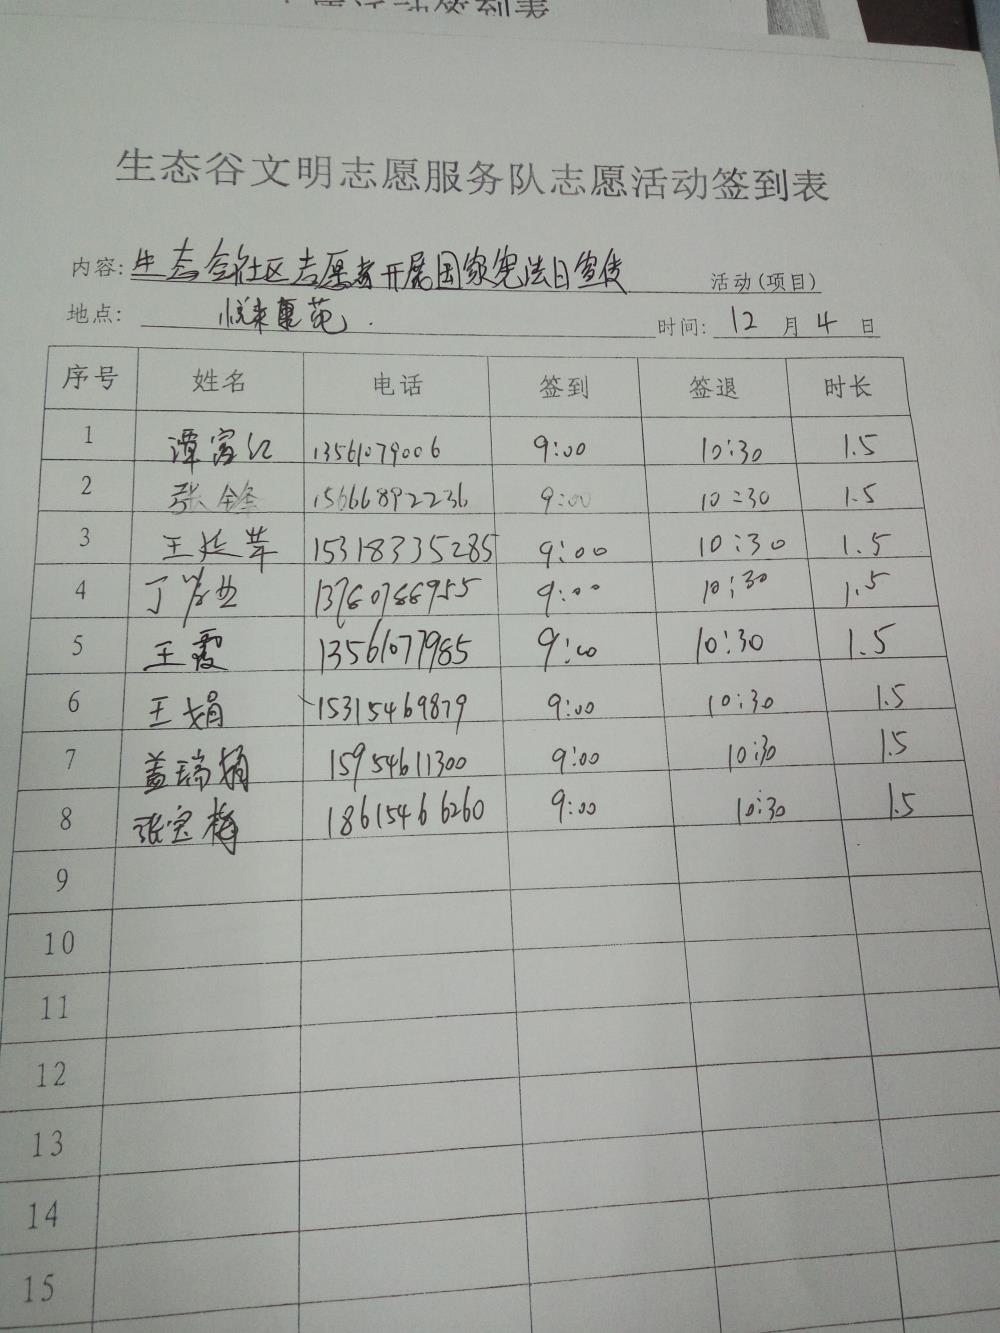 志愿活动签到表
生态谷文明志愿服务队志愿活动签到表
内容: 生态谷社区志愿者开展国家宪法日宣传 活动(项目)
地点: 悦来 苑 时间: 12 月 4 日
序号 姓名 电话 签到 签退 时长
1 谭富红 13561079006 9:00 10:30 1.5
2 张锋 15666892236 9:00 10:30 1.5
3 王延苹 15318335285 9:00 10:30 1.5
4 丁 9:00 10:30 1.5
5 王霞 13561077985 9:00 10:30 1.5
6 王娟 15315469879 9:00 10:30 1.5
7 盖瑞娟 15954611300 9:00 10:30 1.5
8 张宝梅 18615466260 9:00 10:30 1.5
9
10
11
12
13
14
15